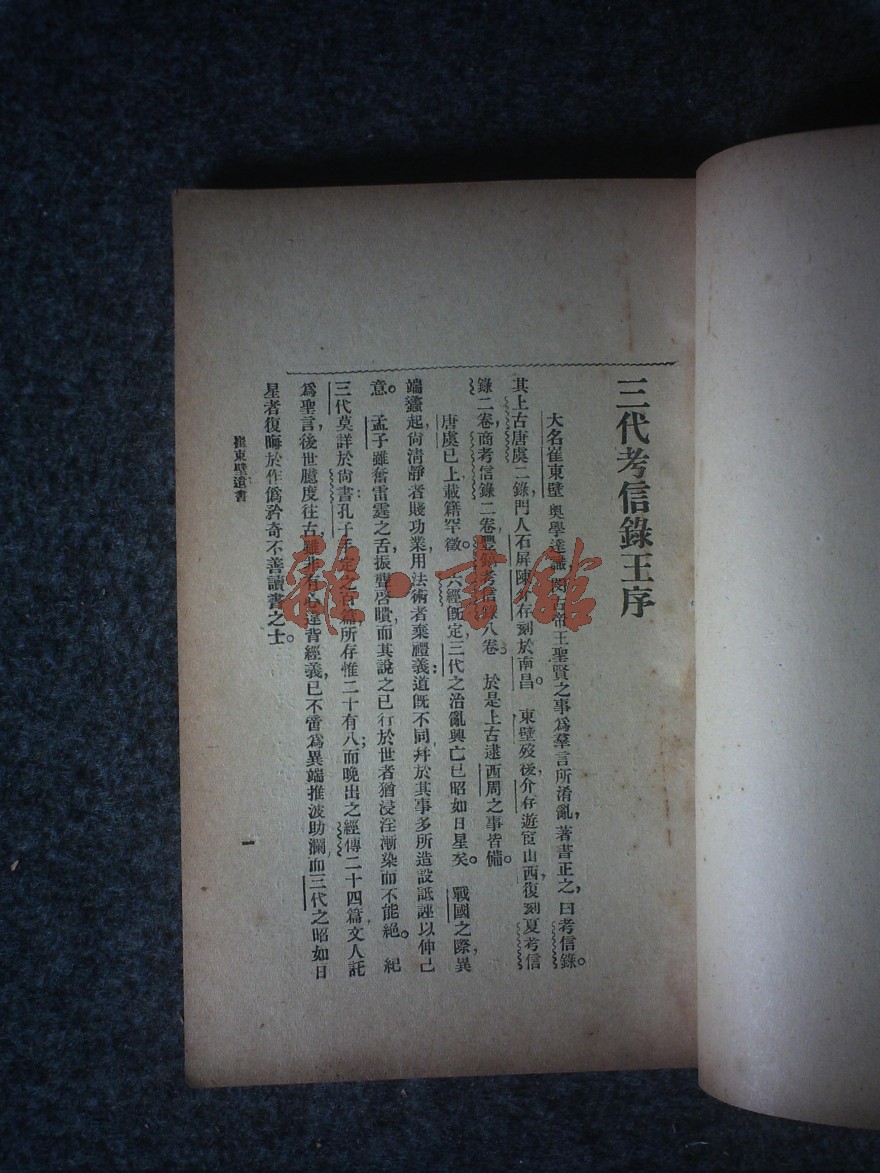 三代考信錄王序
大名崔東壁奧學達識,閔古帝王聖賢之事爲羣言所淆亂,著書正之,曰考信錄。
其上古唐虞二錄,門人石屏陳介存刻於南昌。東壁歿後,介存遊宦山西,復刻夏考信
錄二卷,商考信錄二卷,豐鎬考信錄八卷。於是上古逮西周之事皆備。
唐虞已上載籍罕徵。六經旣定,三代之治亂興亡已昭如日星矣。戰國之際,異
端蠭起,尙淸靜者賤功業,用法術者棄禮義;道旣不同,幷於其事多所造設詆誣以伸己
意。孟子雖奮雷霆之舌,振聾啓聵,而其說之已行於世者猶浸淫漸染而不能絕。紀
三代莫詳於尙書:孔子手定之百篇,所存惟二十有八;而晚出之經傳二十四篇,文人託
爲聖言,後世臆度往古,雖非有心違背經義,已不啻爲異端推波助瀾,而三代之昭如日
星者復晦於作僞矜奇不善讀書之士。
崔東壁遺書
一
雜·書館